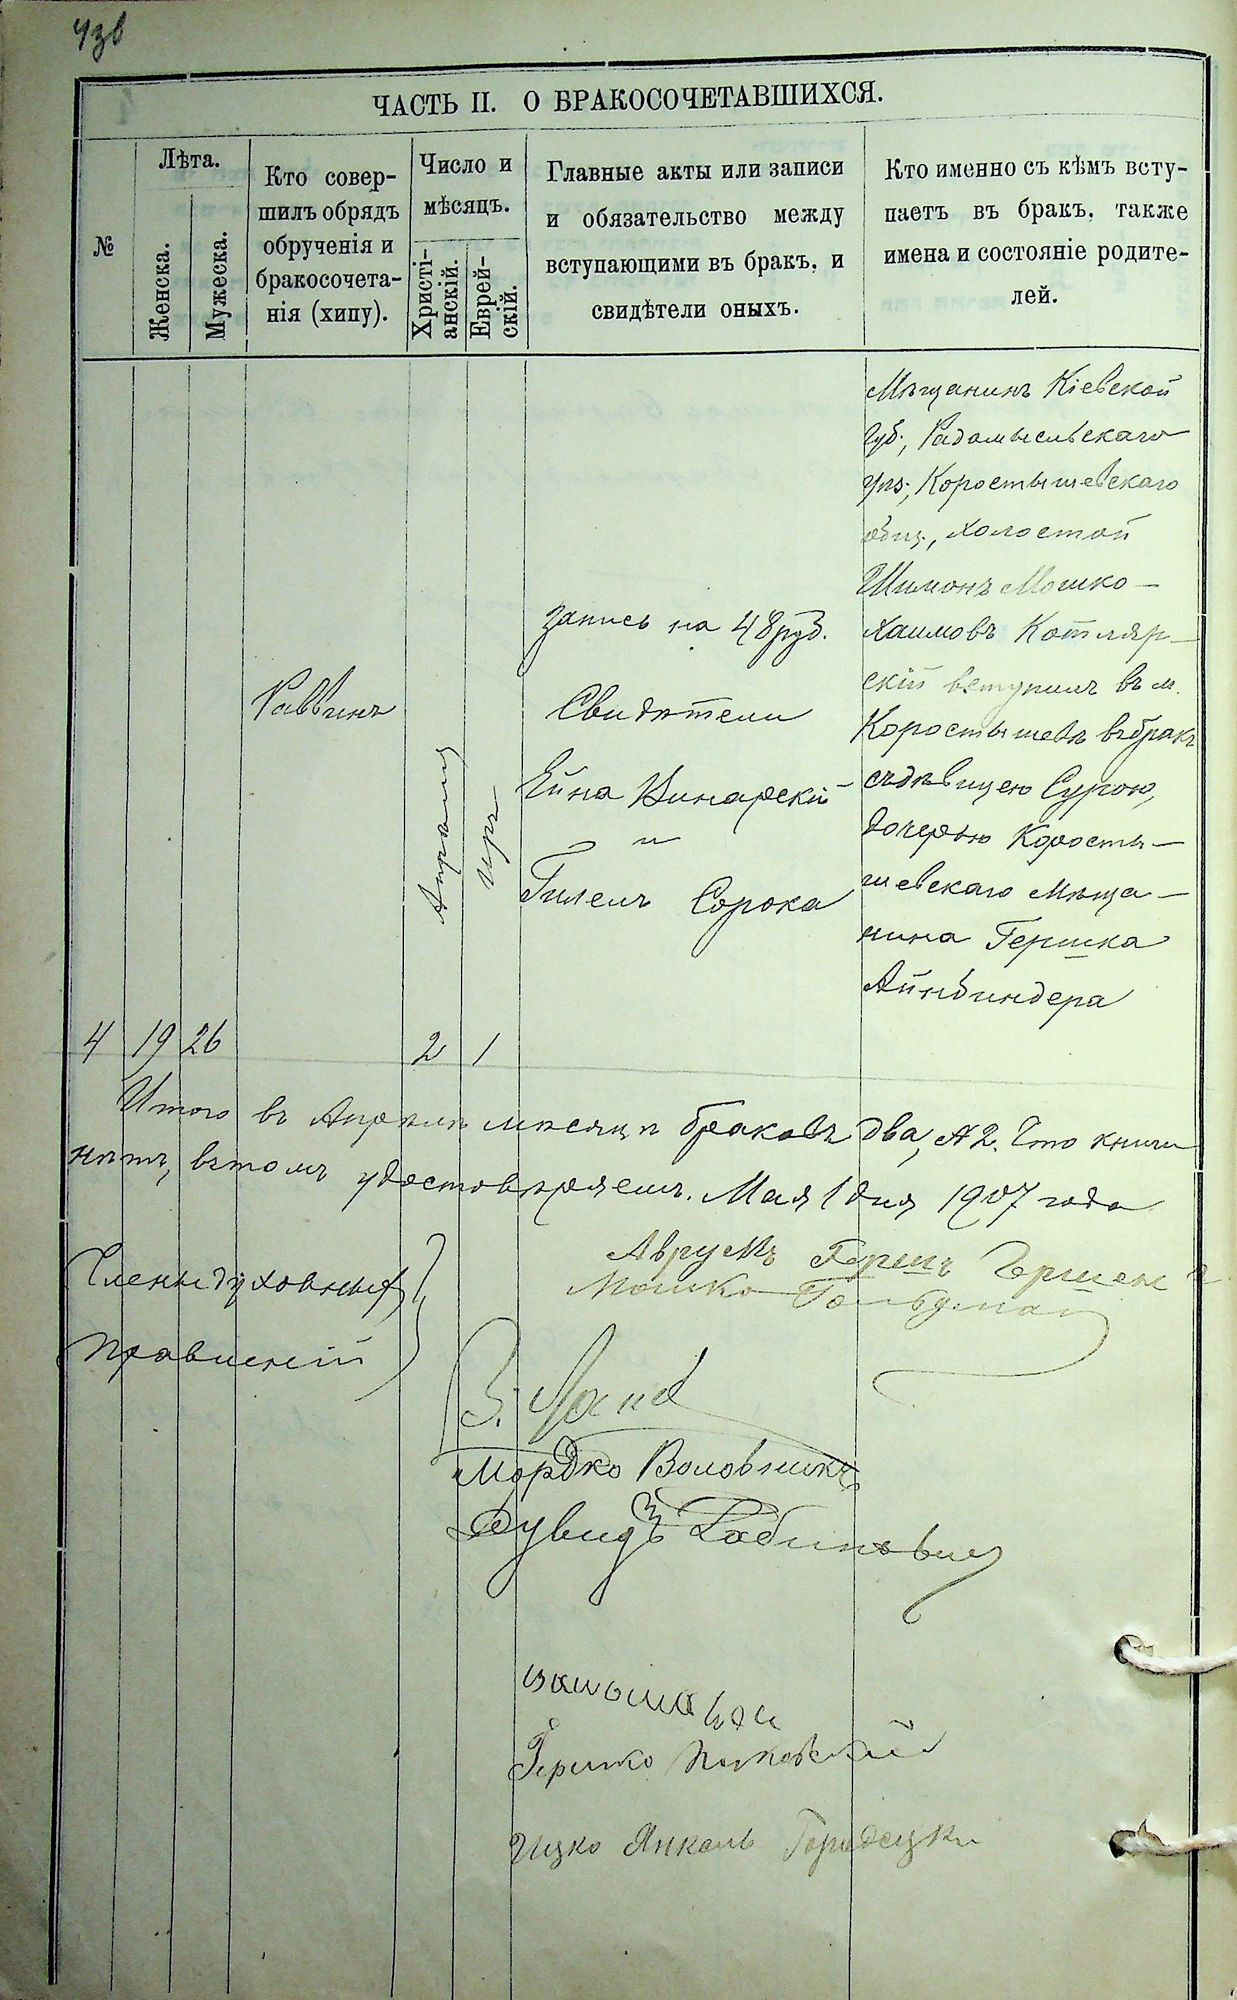 ЧАСТЬ II. О БРАКОСОЧЕТАВШИХСЯ.
№
Лѣта.
Женска.
Мужеска.
Кто совер-
шилъ обрядъ
обрученія и
бракосочета-
нія (хипу).
Число и
мѣсяцъ.
Христі-
анскій.
Еврей-
скій.
Главные акты или записи
и обязательство между
вступающими въ бракъ, и
свидѣтели оныхъ.
Кто именно съ кѣмъ всту-
паетъ въ бракъ, также
имена и состояніе родите-
лей.
4
19
26
Раввинъ
Апрѣля
2
Иръ
1
Запись на 48 руб.
Свидѣтели
Винарскій
и
Гилель Сорока
Мѣщанинъ Кіевской
губ., Радомысльскаго
уѣз., Коростышевскаго
общ., холостой
Шимонъ Мошко-
Хаимовъ Котляр-
скій вступилъ въ м.
Коростышевѣ въ бракъ
съ дѣвицею Сурою,
дочерью Корости-
шевскаго мѣща-
нина Гершка
Айнбиндера
Итого въ Апрѣлѣ мѣсяцѣ браковъ два, № 2. Что
въ томъ удостовѣряемъ. Мая 1 дня 1907 года
Члены духовныхъ
правленій
Аврумъ Герш
Мошко Гольдман
Мордко Воловникъ
Дувидъ Рабинович
Гершко
Ицко Янкель Городецки